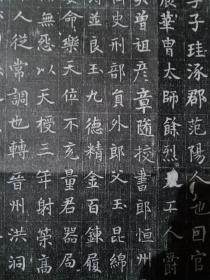 子子珪涿郡范陽人也因官
辰華專太師餘烈工人爵
曾祖彦章隨校書郎恒州
史刑部員外郎父玉昆綿
並良玉九德精金百鍊履
命樂天位不充量君器局
無忝以天授三年射策高
人從常調也轉晉州洪洞